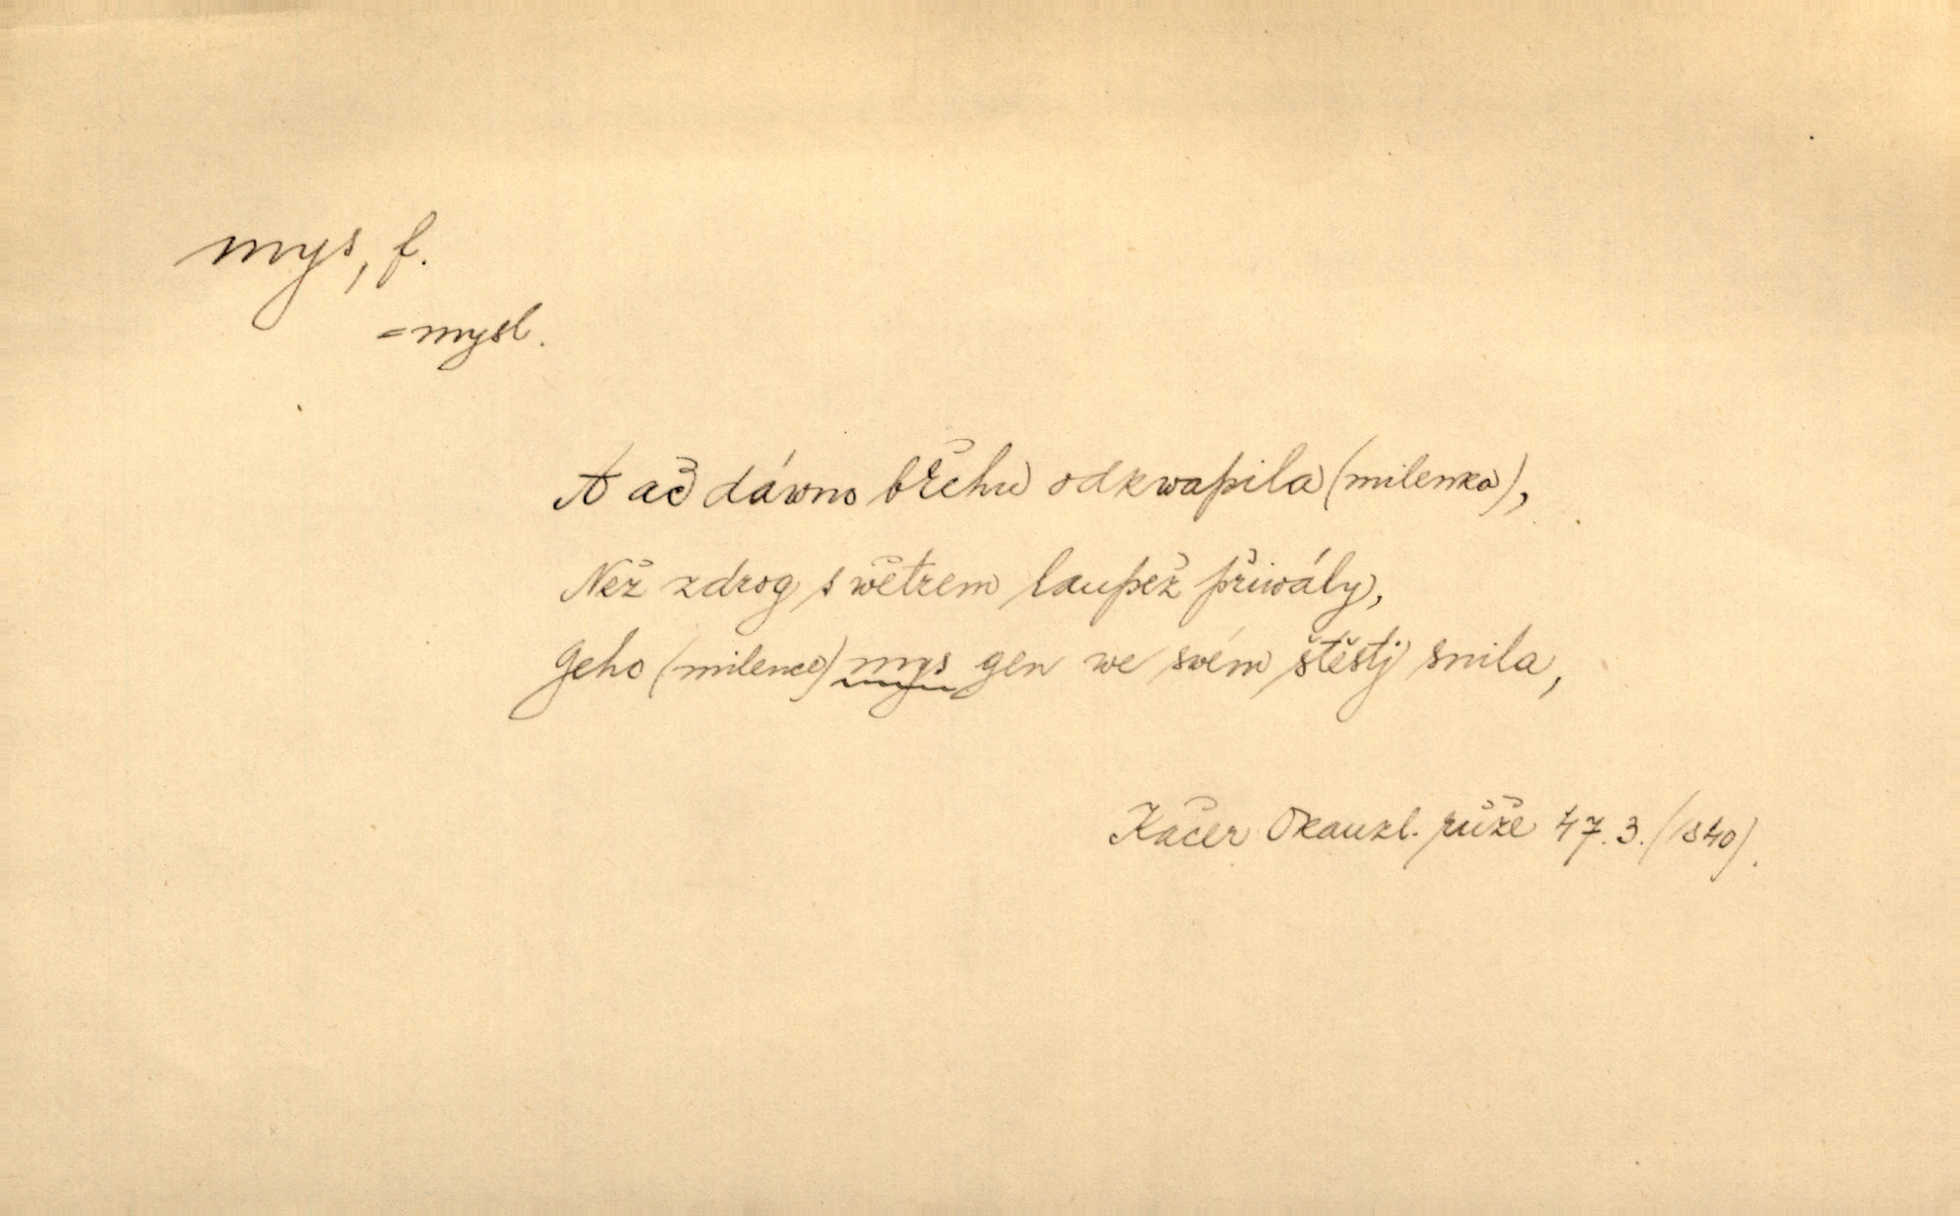 mys, f.
= mysl.
A ač dáwno břehu odkwapila (milenka),
Než zdrog s wětrem laupež přiwály,
Geho (milence) mys gen we svém štěstj snila,
Kačer Okauzl. růže 47. 3. (1840).